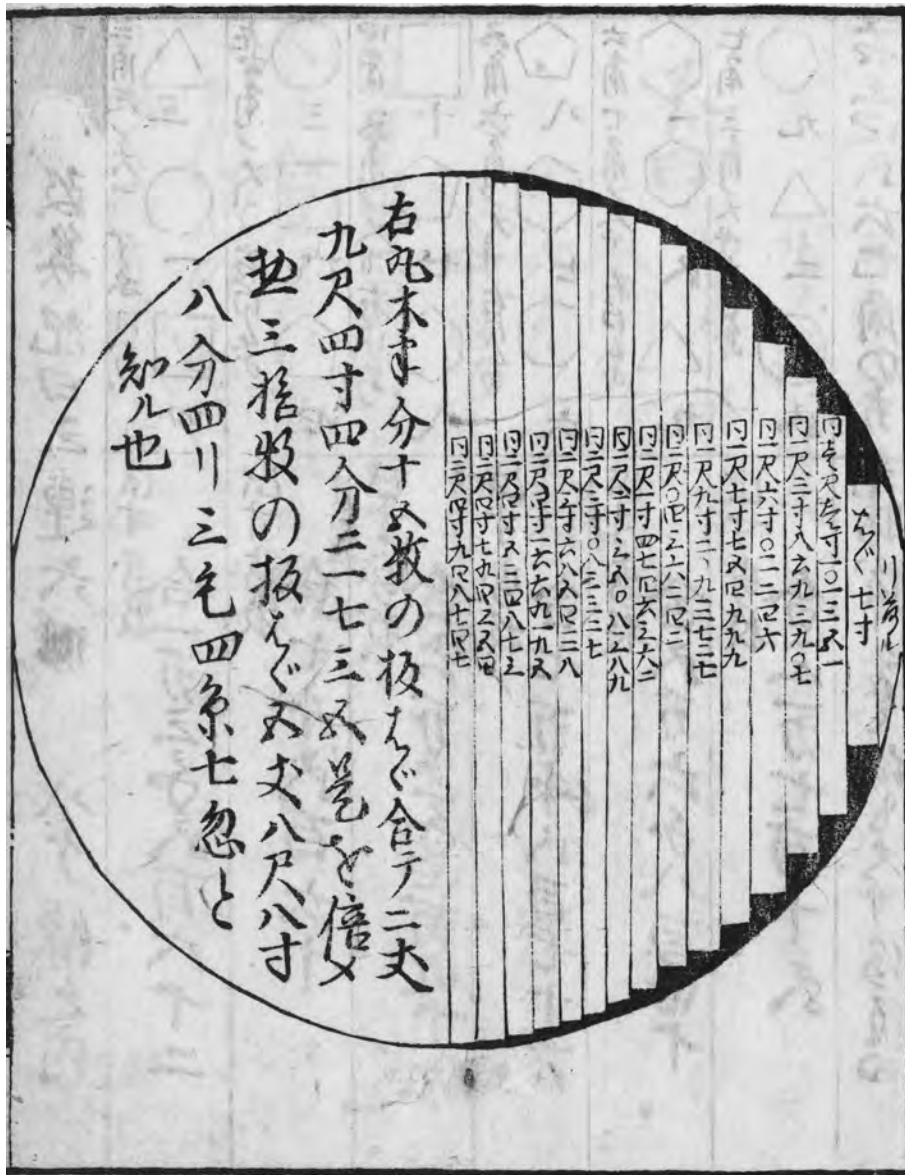 はゞ 七寸
同壱尺壱寸一〇一三五一
同一尺三寸八六九三九〇七
同一尺六寸〇一一二四六
同一尺七寸七五四九九九
同一尺九寸二〇九三七二七
同二尺〇四三六二四二
同二尺一寸四七四六三六二
同二尺二寸三五〇八三八九
同二尺三寸〇八三三二七
同二尺三寸六八五四三八
同二尺四寸一六六九一九五
同二尺四寸五三四八七三
同二尺四寸七九四三五四
同二尺四寸九四八七四七
右丸木半分十五枚の板はゞ合テ二丈
九尺四寸四分二一七三五是を倍〆
惣三拾枚の板はゞ五丈八尺八寸
八分四リ三毛四糸七忽と
知ル也